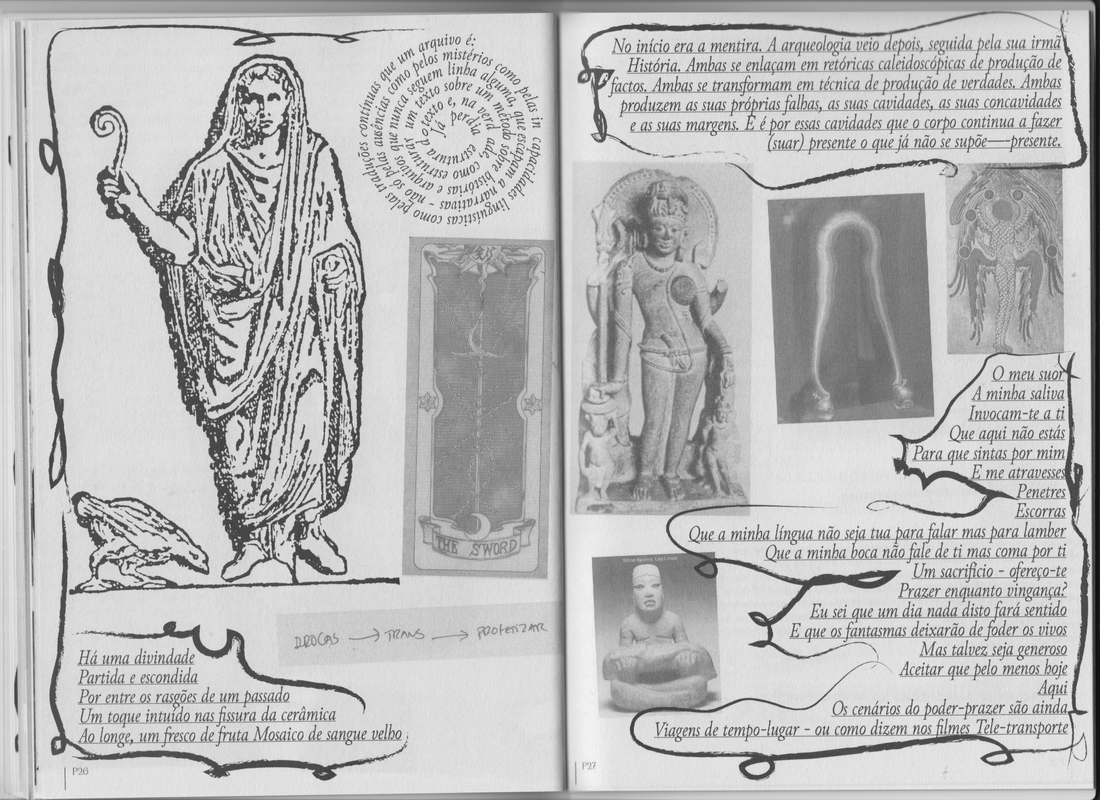 estruturar um texto sobre um método sobre histórias e arquivos que nunca seguem linha alguma, que escapam a narrativas - não só pelas ausências como pelos mistérios como pelas in capacidades linguísticas como pelas traduções contínuas que um arquivo é:
THE SWORD
DROGAS → TRANS → PROFETIZAR
Há uma divindade
Partida e escondida
Por entre os rasgões de um passado
Um toque intuído nas fissura da cerâmica
Ao longe, um fresco de fruta Mosaico de sangue velho
P26
No início era a mentira. A arqueologia veio depois, seguida pela sua irmã
História. Ambas se enlaçam em retóricas caleidoscópicas de produção de
factos. Ambas se transformam em técnica de produção de verdades. Ambas
produzem as suas próprias falhas, as suas cavidades, as suas concavidades
e as suas margens. E é por essas cavidades que o corpo continua a fazer
(suar) presente o que já não se supõe——presente.
O meu suor
A minha saliva
Invocam-te a ti
Que aqui não estás
Para que sintas por mim
E me atravesses
Penetres
Escorras
Que a minha língua não seja tua para falar mas para lamber
Que a minha boca não fale de ti mas coma por ti
Um sacrifício - ofereço-te
Prazer enquanto vingança?
Eu sei que um dia nada disto fará sentido
E que os fantasmas deixarão de foder os vivos
Mas talvez seja generoso
Aceitar que pelo menos hoje
Aqui
Os cenários do poder-prazer são ainda
Viagens de tempo-lugar - ou como dizem nos filmes Tele-transporte
P27